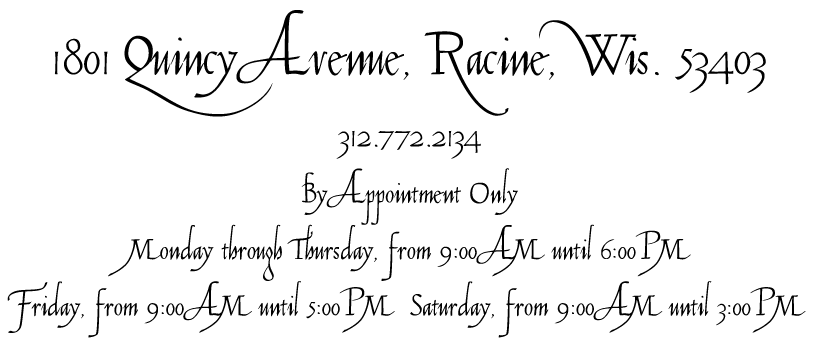 1801 Quincy Avenue, Racine, Wis. 53403
312.772.2134
By Appointment Only
Monday through Thursday, from 9:00 AM until 6:00 PM
Friday, from 9:00 AM until 5:00 PM Saturday, from 9:00 AM until 3:00 PM